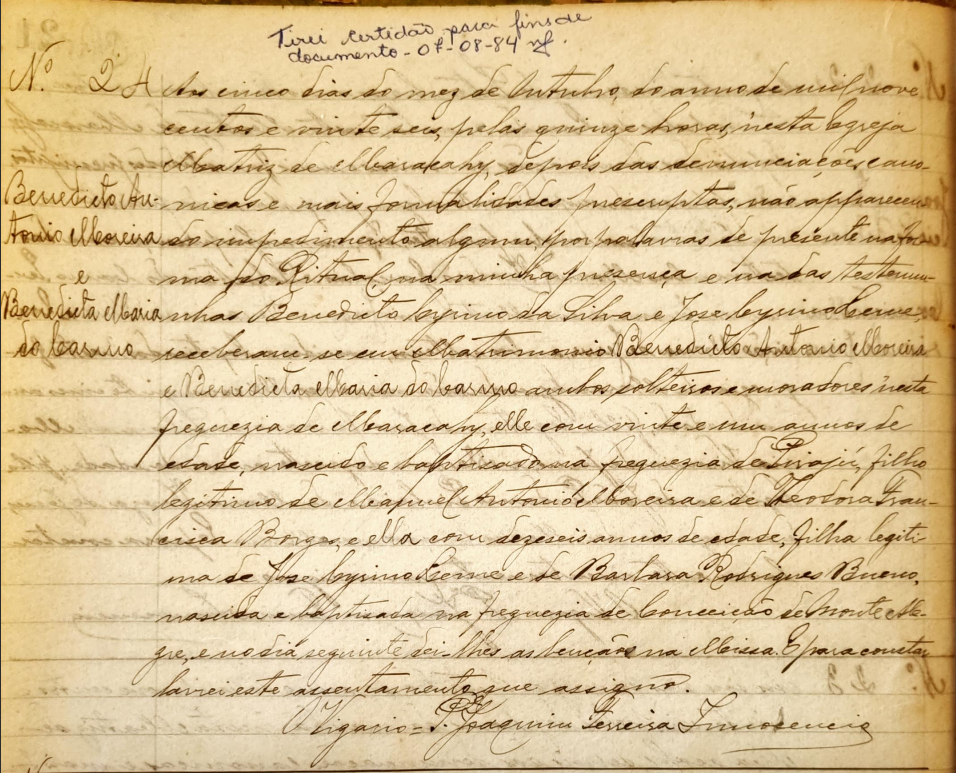 Tirei certidão para fins de
documento - 07-08-84
Nº 24
Benedicto An-
tonio Moreira
e
Benedicta Maria
do Carmo
Aos cinco dias do mez de Outubro, do anno de mil nove
centos e vinte seis, pelas quinze horas, nesta Egreja
Matriz de Maracahy, depois das denunciações cano-
nicas e mais formalidades prescriptas, não apparecen-
do impedimento algum, por palavras de presente na for-
ma do Ritual, na minha presença e na das testemu-
nhas Benedicto Cyrino da Silva e Jose Cyrino Leme,
receberam-se em Matrimonio Benedicto Antonio Moreira
e Benedicta Maria do Carmo ambos solteiros e moradores nesta
freguezia de Maracahy, elle com vinte e um annos de
edade, nascido e baptisado na freguezia de Pirajú, filho
legitimo de Manuel Antonio Moreira e de Theodora Fran-
cisca Borges, e ella com dezeseis annos de edade, filha legiti
ma de Jose Cyrino Leme e de Barbara Rodrigues Bueno,
nascida e baptisada na freguezia de Conceição de Monte Ale-
gre, e no dia seguinte dei-lhes as bençãos na Missa. E para constar
lavrei este assentamento que assigno.
O Vigario = P. Joaquim Ferreira Innocencio